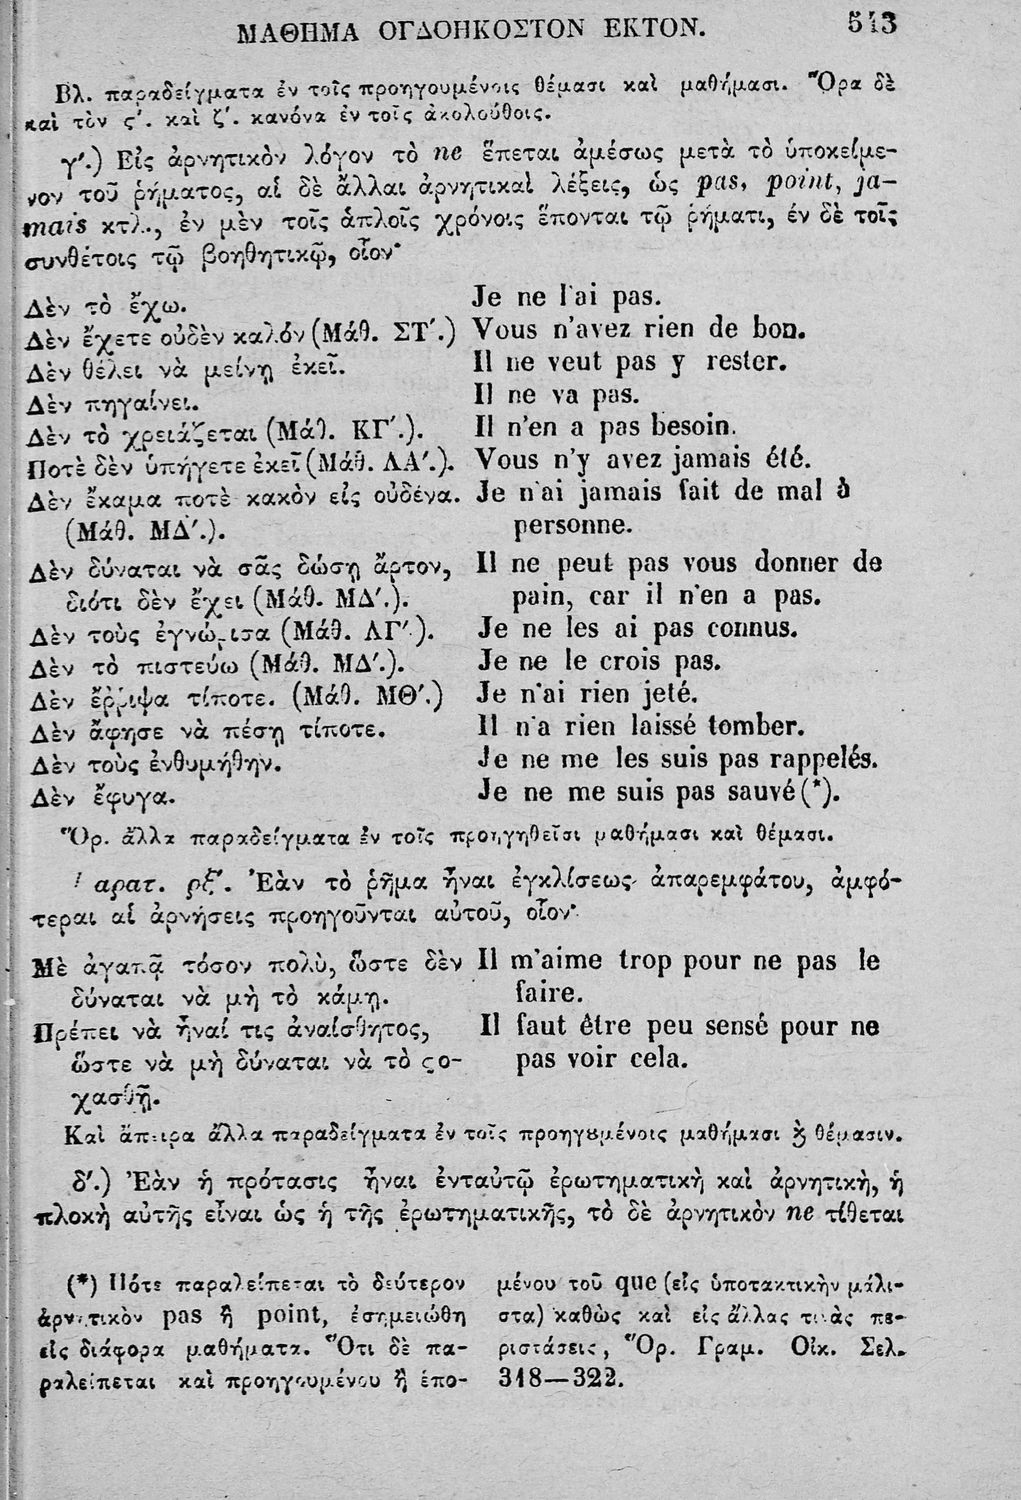 ΜΑΘΗΜΑ ΟΓΔΟΗΚΟΣΤΟΝ ΕΚΤΟΝ. 543
Βλ. παραδείγματα ἐν τοῖς προηγουμένοις θέμασι καὶ μαθήμασι. Ὅρα δὲ
καὶ τὸν ς΄. καὶ ζ΄. κανόνα ἐν τοῖς ἀκολούθοις.
γ΄.) Εἰς ἀρνητικὸν λόγον τὸ ne ἕπεται ἀμέσως μετὰ τὸ ὑποκείμε-
νον τοῦ ῥήματος, αἱ δὲ ἄλλαι ἀρνητικαὶ λέξεις, ὡς pas, point, ja-
mais κτλ., ἐν μὲν τοῖς ἁπλοῖς χρόνοις ἕπονται τῷ ῥήματι, ἐν δὲ τοῖς
συνθέτοις τῷ βοηθητικῷ, οἷον·
Δὲν τὸ ἔχω. Je ne l'ai pas.
Δὲν ἔχετε οὐδὲν καλόν (Μάθ. ΣΤ΄.) Vous n'avez rien de bon.
Δὲν θέλει νὰ μείνῃ ἐκεῖ. Il ne veut pas y rester.
Δὲν πηγαίνει. Il ne va pas.
Δὲν τὸ χρειάζεται (Μάθ. ΚΓ΄.). Il n'en a pas besoin.
Ποτὲ δὲν ὑπήγετε ἐκεῖ (Μάθ. ΛΑ΄.). Vous n'y avez jamais été.
Δὲν ἔκαμα ποτὲ κακὸν εἰς οὐδένα. Je n'ai jamais fait de mal à
(Μάθ. ΜΔ΄.). personne.
Δὲν δύναται νὰ σᾶς δώσῃ ἄρτον, Il ne peut pas vous donner de
διότι δὲν ἔχει (Μάθ. ΜΔ΄.). pain, car il n'en a pas.
Δὲν τοὺς ἐγνώρισα (Μάθ. ΛΓ΄.). Je ne les ai pas connus.
Δὲν τὸ πιστεύω (Μάθ. ΜΔ΄.). Je ne le crois pas.
Δὲν ἔῤῥιψα τίποτε. (Μάθ. ΜΘ΄.) Je n'ai rien jeté.
Δὲν ἄφησε νὰ πέσῃ τίποτε. Il n'a rien laissé tomber.
Δὲν τοὺς ἐνθυμήθην. Je ne me les suis pas rappelés.
Δὲν ἔφυγα. Je ne me suis pas sauvé (*).
Ὅρ. ἄλλα παραδείγματα ἐν τοῖς προηγηθεῖσι μαθήμασι καὶ θέμασι.
αρατ. ρξ΄. Ἐὰν τὸ ῥῆμα ἦναι ἐγκλίσεως ἀπαρεμφάτου, ἀμφό-
τεραι αἱ ἀρνήσεις προηγοῦνται αὐτοῦ, οἷον·
Μὲ ἀγαπᾷ τόσον πολὺ, ὥστε δὲν Il m'aime trop pour ne pas le
δύναται νὰ μὴ τὸ κάμῃ. faire.
Πρέπει νὰ ἦναί τις ἀναίσθητος, Il faut être peu sensé pour ne
ὥστε νὰ μὴ δύναται νὰ τὸ ϛο- pas voir cela.
χασθῇ.
Καὶ ἄπειρα ἄλλα παραδείγματα ἐν τοῖς προηγȣμένοις μαθήμασι ϗ θέμασιν.
δ΄.) Ἐὰν ἡ πρότασις ἦναι ἐνταὐτῷ ἐρωτηματικὴ καὶ ἀρνητικὴ, ἡ
πλοκὴ αὐτῆς εἶναι ὡς ἡ τῆς ἐρωτηματικῆς, τὸ δὲ ἀρνητικὸν ne τίθεται
(*) Πότε παραλείπεται τὸ δεύτερον
ἀρνητικὸν pas ἢ point, ἐσημειώθη
εἰς διάφορα μαθήματα. Ὅτι δὲ πα-
ραλείπεται καὶ προηγουμένου ἢ ἑπο-
μένου τοῦ que (εἰς ὑποτακτικὴν μάλι-
στα) καθὼς καὶ εἰς ἄλλας τινὰς πε-
ριστάσεις, Ὅρ. Γραμ. Οἰκ. Σελ.
318—322.